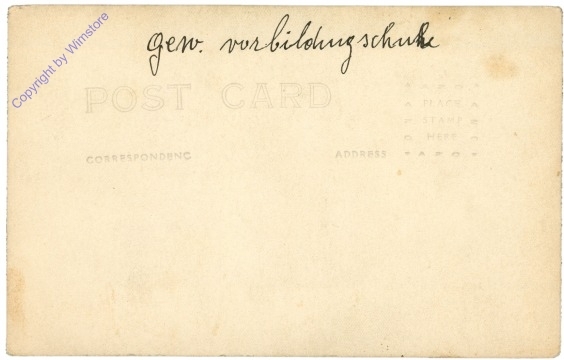 gew. vorbildungschule
Copyright by Wimstore
POST CARD
PLACE
STAMP
HERE
CORRESPONDENC
ADDRESS